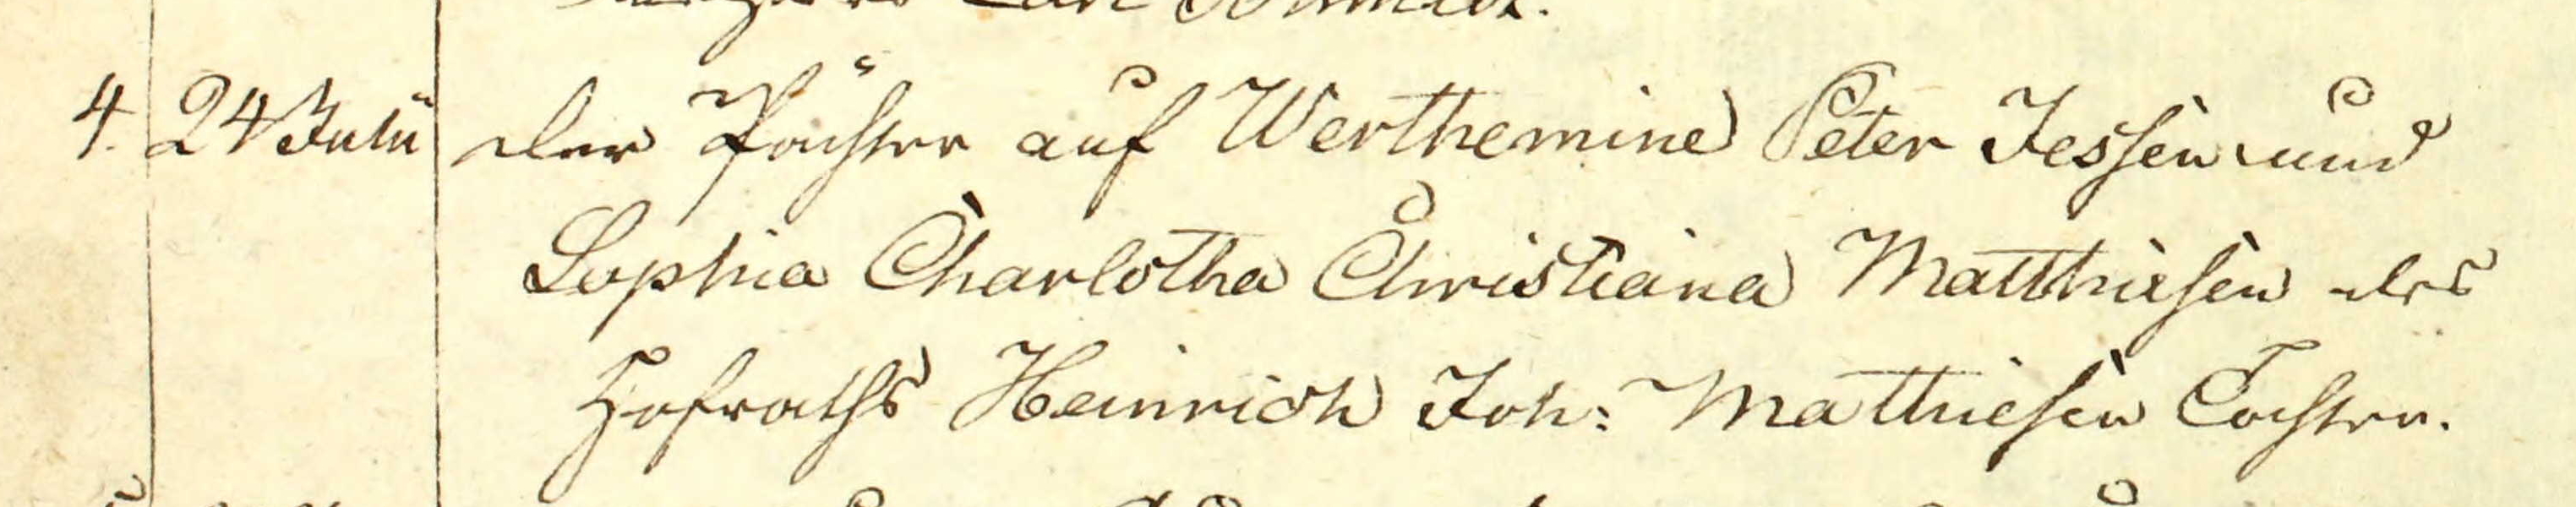 Carl Schmidt.
4. 24 Julii der Pächter auf Werthemine Peter Jessen und
Sophia Charlotha Christiana Matthiesen des
Hofraths Heinrich Joh: Matthiesen Tochter.